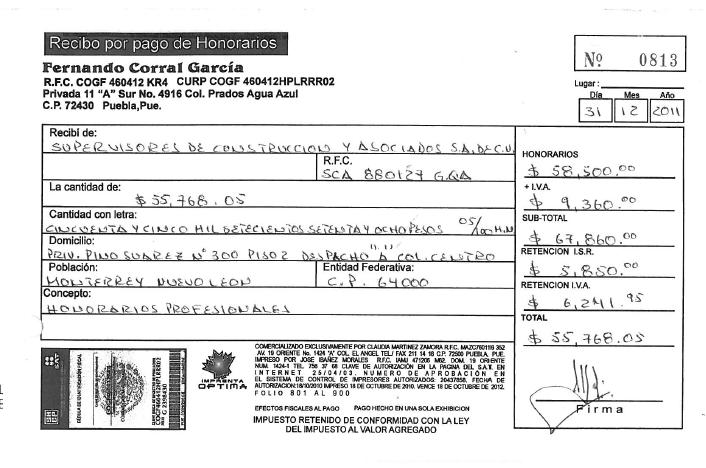 Recibo por pago de Honorarios
Fernando Corral García
R.F.C. COGF 460412 KR4 CURP COGF 460412HPLRRR02
Privada 11 "A" Sur No. 4916 Col. Prados Agua Azul
C.P. 72430 Puebla,Pue.
Nº 0813
Lugar:
Día Mes Año
31 12 2011
Recibí de:
SUPERVISORES DE CONSTRUCCION Y ASOCIADOS S.A. DE C.V.
R.F.C.
SCA 880127 GQA
La cantidad de:
$ 55,768.05
Cantidad con letra:
CINCUENTA Y CINCO MIL SETECIENTOS SETENTA Y OCHO PESOS 05/100 M.N
Domicilio:
PRIV. PINO SUAREZ Nº 300 PISO 2 DESPACHO "A" COL. CENTRO
Población:
MONTERREY NUEVO LEON
Entidad Federativa:
C.P. 64000
Concepto:
HONORARIOS PROFESIONALES
HONORARIOS
$ 58,500.00
+ I.V.A.
$ 9,360.00
SUB-TOTAL
$ 67,860.00
RETENCION I.S.R.
$ 5,850.00
RETENCION I.V.A.
$ 6,241.95
TOTAL
$ 55,768.05
Firma
IMPRENTA
OPTIMA
COMERCIALIZADO EXCLUSIVAMENTE POR CLAUDIA MARTINEZ ZAMORA R.F.C. MAZC760119 352
AV. 19 ORIENTE No. 1424 'A' COL. EL ANGEL TEL/ FAX 211 14 18 C.P. 72500 PUEBLA, PUE.
IMPRESO POR JOSE IBAÑEZ MORALES R.F.C. IAMJ 471206 M62. DOM. 19 ORIENTE
NUM. 1424-1 TEL. 756 37 68 CLAVE DE AUTORIZACIÓN EN LA PAGINA DEL S.A.T. EN
INTERNET 25/04/03. NUMERO DE APROBACIÓN EN
EL SISTEMA DE CONTROL DE IMPRESORES AUTORIZADOS: 20437858, FECHA DE
AUTORIZACION:18/10/2010 IMPRESO 18 DE OCTUBRE DE 2010. VENCE 18 DE OCTUBRE DE 2012.
FOLIO 801 AL 900
EFECTOS FISCALES AL PAGO PAGO HECHO EN UNA SOLA EXHIBICION
IMPUESTO RETENIDO DE CONFORMIDAD CON LA LEY
DEL IMPUESTO AL VALOR AGREGADO